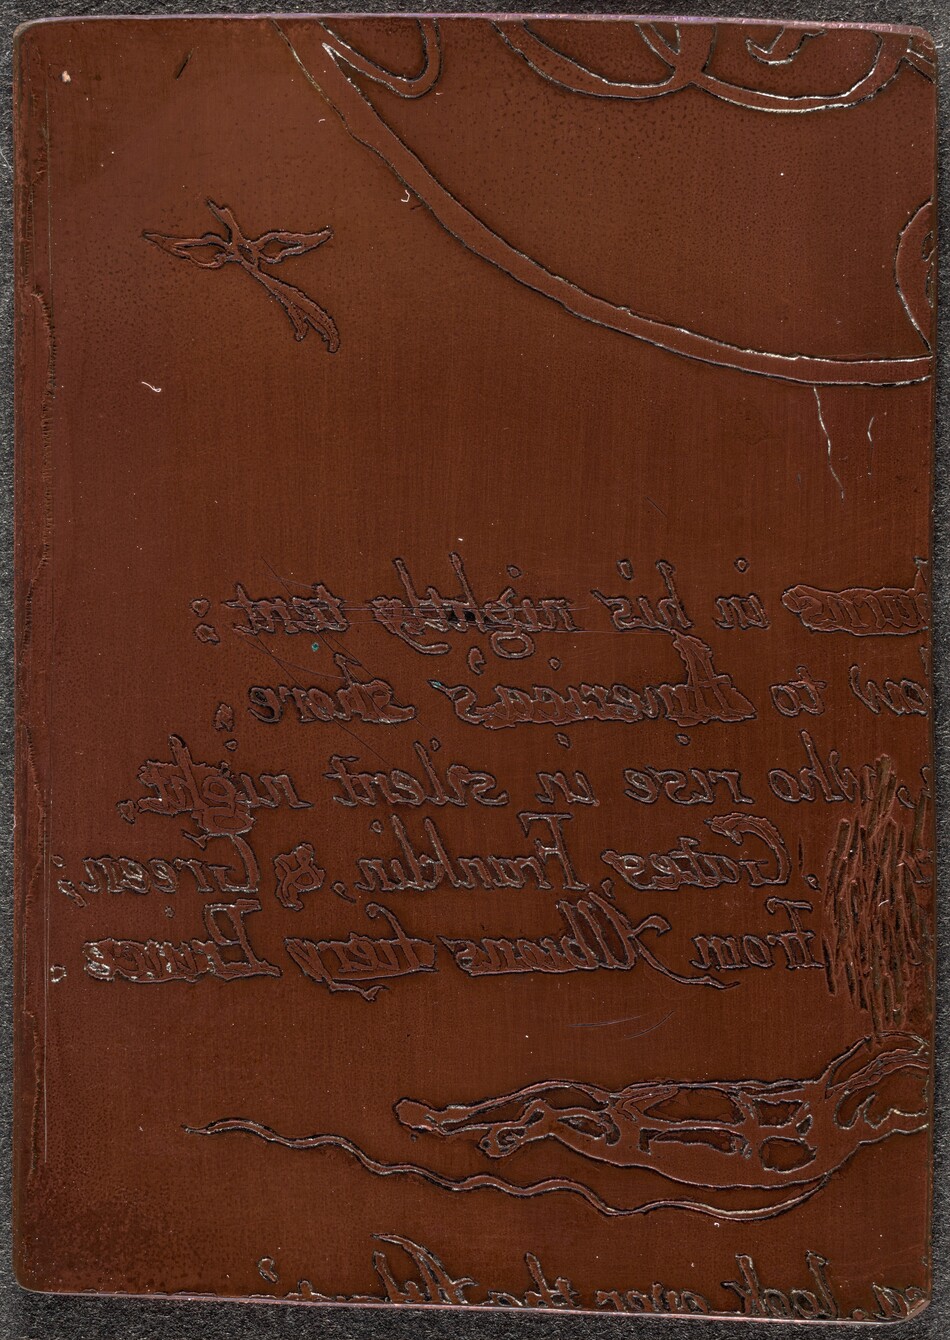 in his nightly tent:
to Americas shore;
who rise in silent night,
Gates, Franklin, & Green;
from Albions fiery Prince
look over the Atlantic